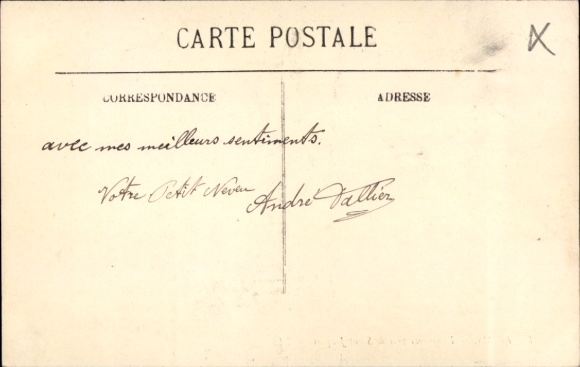 CARTE POSTALE
CORRESPONDANCE
ADRESSE
avec mes meilleurs sentiments.
Votre Petit Neveu
André Vallier